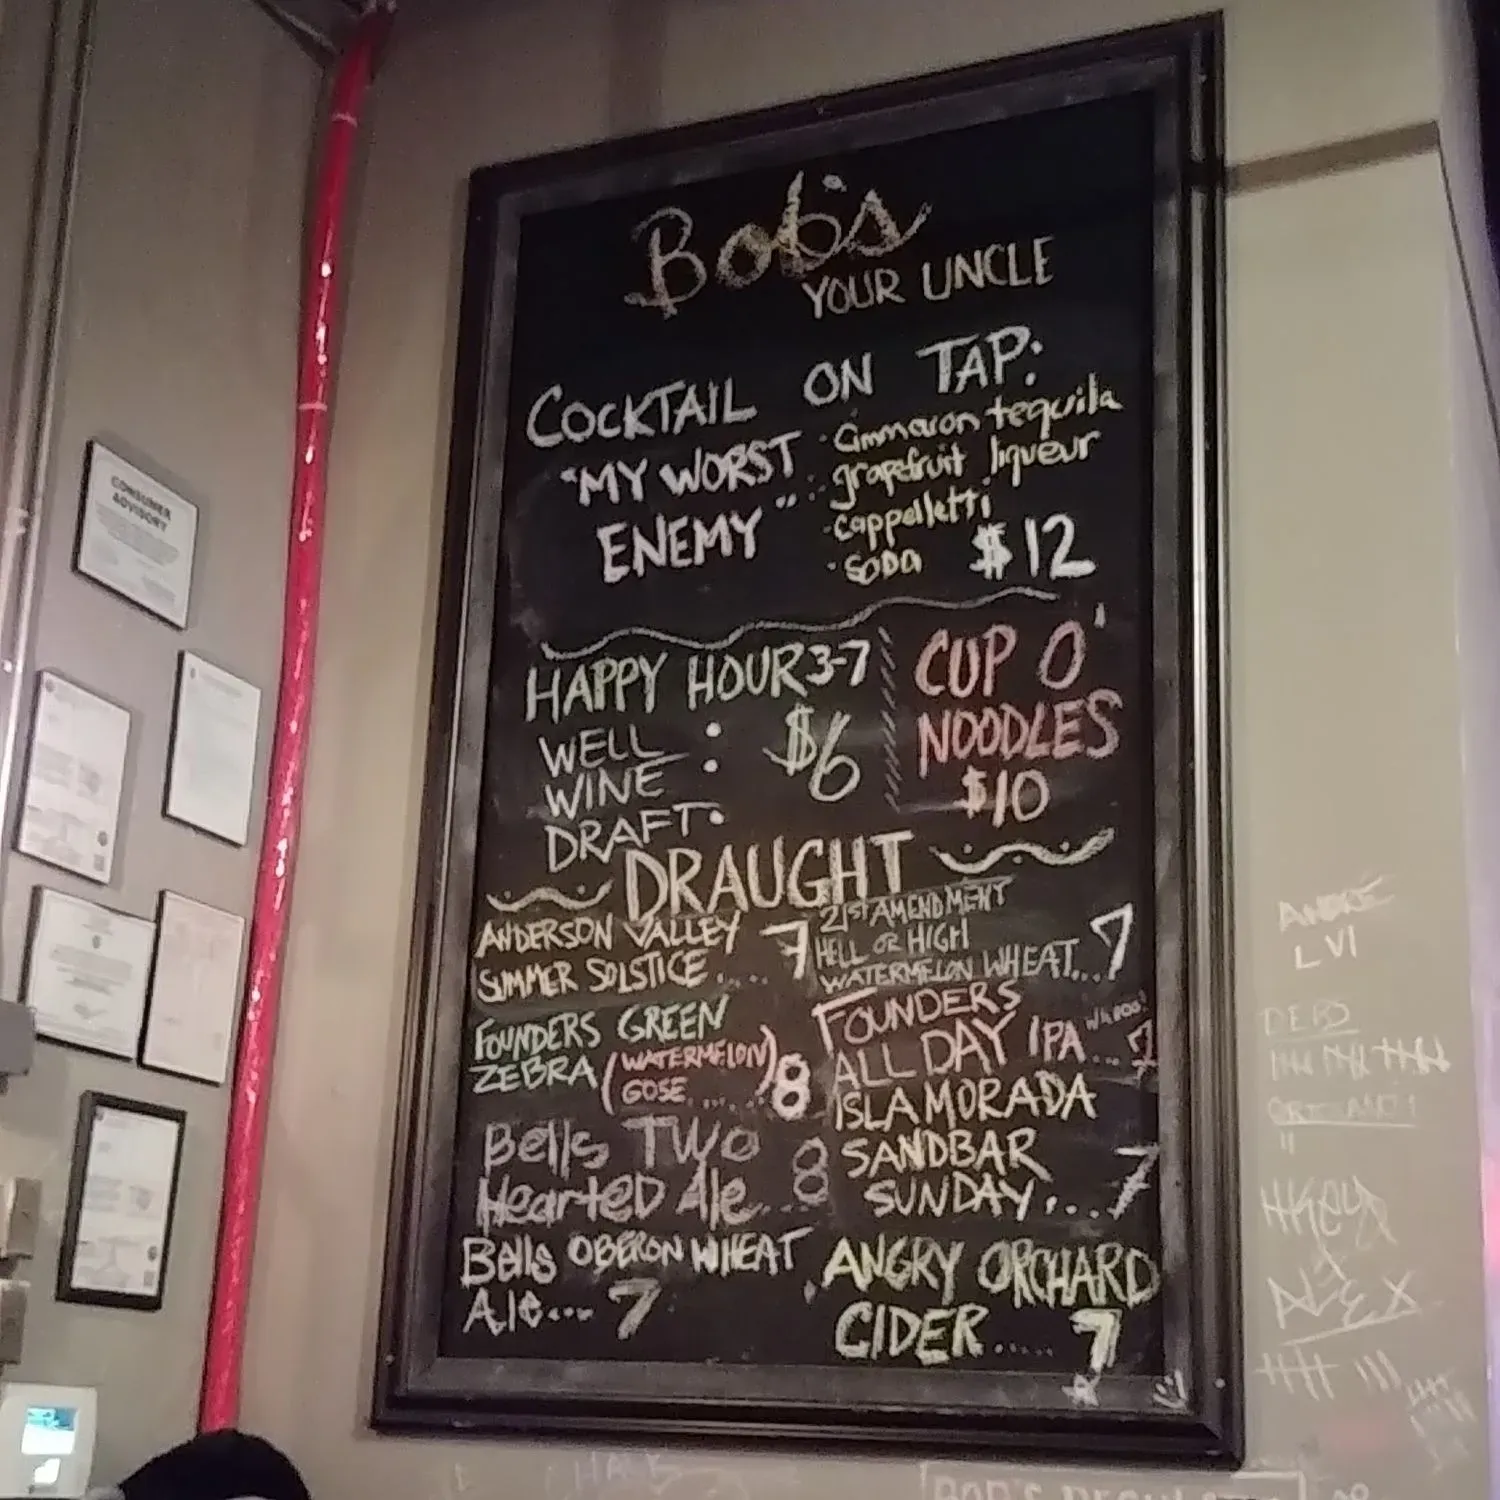 Bob's
YOUR UNCLE
COCKTAIL ON TAP:
"MY WORST
ENEMY"
· Cimmaron tequila
· grapefruit liqueur
· cappelletti
· SODA
$12
HAPPY HOUR 3-7
WELL :
WINE
DRAFT·
$6
CUP O'
NOODLES
$10
DRAUGHT
ANDERSON VALLEY
SUMMER SOLSTICE..... 7
FOUNDERS GREEN
ZEBRA (WATERMELON
GOSE......) 8
Bells TWO
HeartED Ale... 8
Bells OBERON WHEAT
Ale... 7
21ST AMENDMENT
HELL OR HIGH
WATERMELON WHEAT... 7
FOUNDERS
ALL DAY IPA... 7
ISLAMORADA
SANDBAR
SUNDAY... 7
ANGRY ORCHARD
CIDER..... 7
CONSUMER
ADVISORY
ANDRE
LVI
DEBS
ALEX